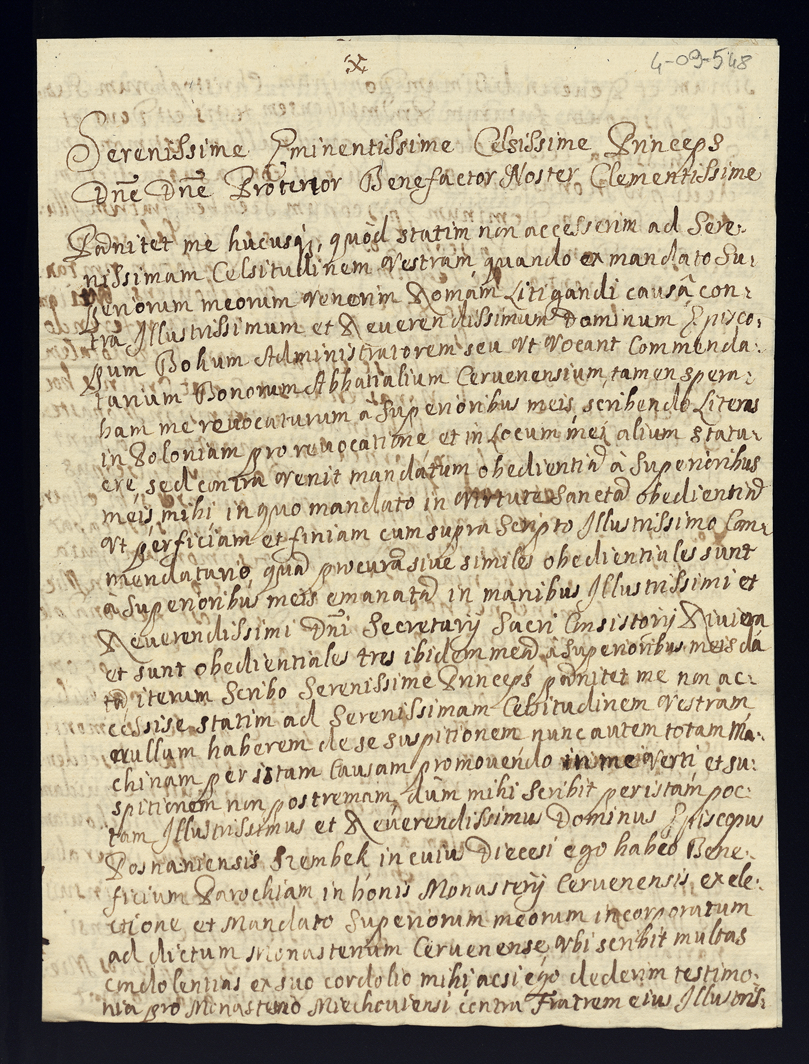 4-09-548
Serenissime Eminentissime Celsissime Princeps
Dnē Dnē Benefactor Noster Clementissime
Pænitet me hucusq;, quod statim non accesserim ad Sere-
nissimam Celsitudinem Vestram quando ex mandato Su-
periorum meorum venerim Romam Litigandi causâ con-
tra Illustrissimum et Reverendissimum Dominum Episco-
pum Bokum Administratorem seu vt vocant Commenda-
tarium Bonorum Abbatialium Ceruenensium, tamen spera-
bam me reuocaturum à Superioribus meis, scribendo Literas
in Poloniam pro reuocatione et in Locum mei alium statu-
ere, sed contra venit mandatum obedientiæ à Superioribus
meis mihi in quo mandato in virtute Sanctæ obedientiæ
vt perficiam et finiam cum supra Scripto Illustrissimo Com-
mendatario, quæ procuræ siue similes obedientiales sunt
à Superioribus meis emanatæ in manibus Illustrissimi et
Reverendissimi Dni Secretarij Sacri Consistorij Riviera
et sunt obedientiales tres ibidem meæ à Superioribus meis da-
tæ iterum Scribo Serenissime Princeps pænitet me non ac-
cessise statim ad Serenissimam Celsitudinem Vestram
nullum haberem de se suspitionem nunc autem totam Ma-
chinam per istam Causam promouendo in me verti et su-
spitionem non postremam, dum mihi Scribit per istam poc-
tam Illustrissimus et Reverendissimus Dominus Episcopus
Posnaniensis Szembek in cuius Diecesi ego habeo Bene-
ficium Parochiam in bonis Monasterij Ceruenensis, ex ele-
ctione et Mandato Superiorum meorum incorporatum
ad dictum Monasterium Ceruenense, vbi scribit multas
condolentias ex suo cordolio mihi acsi ego dederim testimo-
nia pro Monasterio Miechouiensi contra Fratrem eius Illustris-